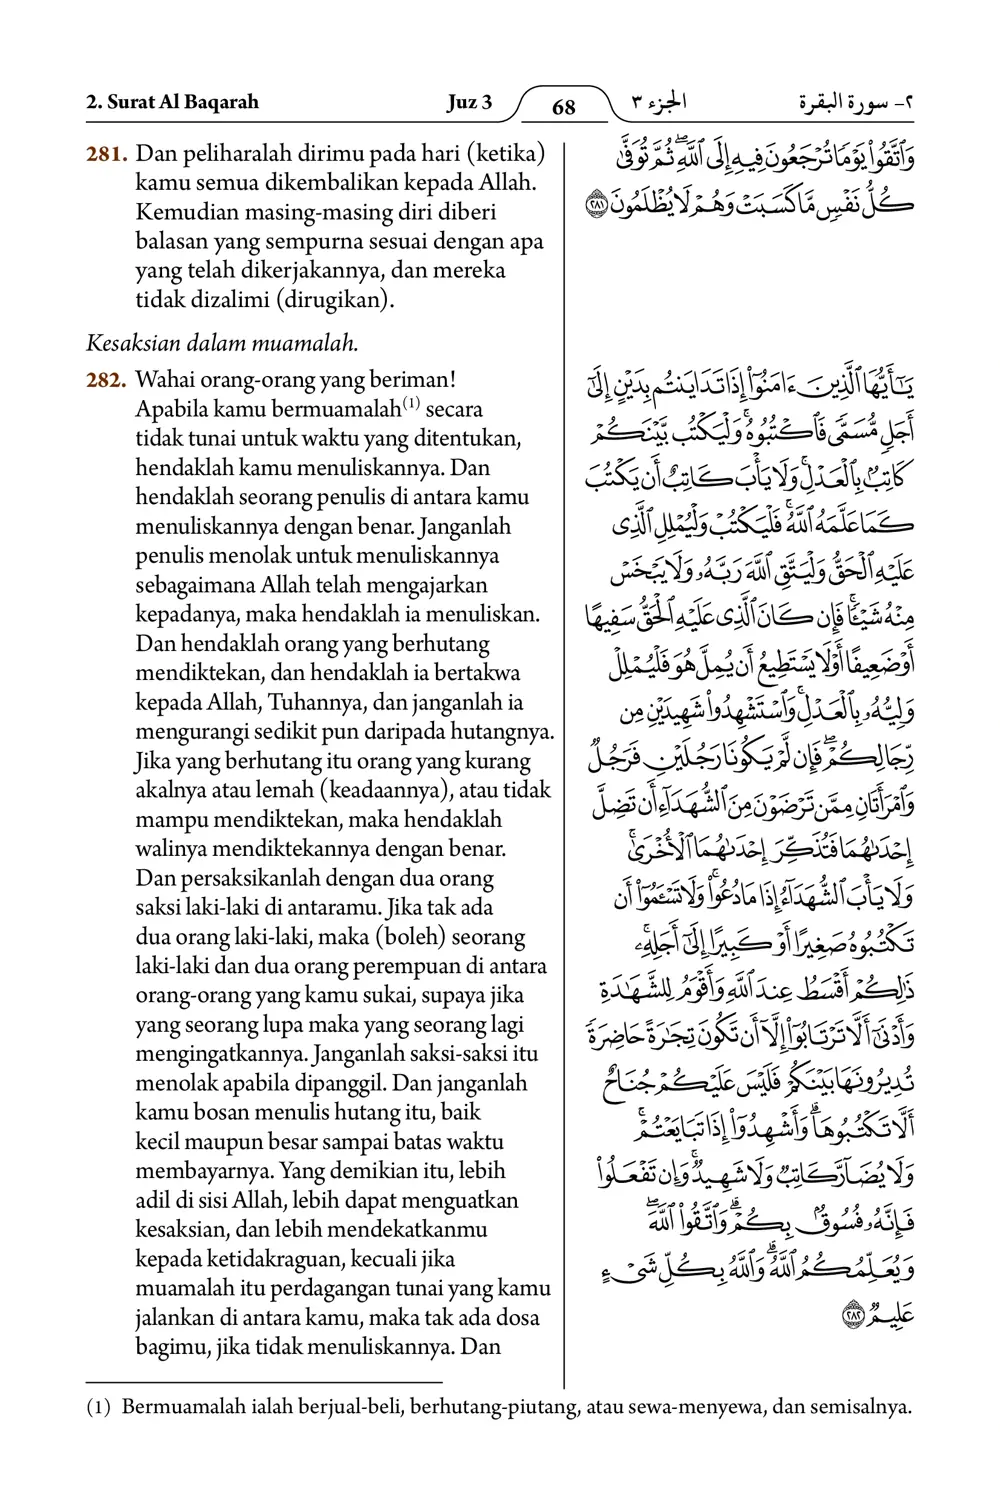 2. Surat Al Baqarah Juz 3 68 الجزء ٣ ٢- سورة البقرة
281. Dan peliharalah dirimu pada hari (ketika)
kamu semua dikembalikan kepada Allah.
Kemudian masing-masing diri diberi
balasan yang sempurna sesuai dengan apa
yang telah dikerjakannya, dan mereka
tidak dizalimi (dirugikan).
Kesaksian dalam muamalah.
282. Wahai orang-orang yang beriman!
Apabila kamu bermuamalah(1) secara
tidak tunai untuk waktu yang ditentukan,
hendaklah kamu menuliskannya. Dan
hendaklah seorang penulis di antara kamu
menuliskannya dengan benar. Janganlah
penulis menolak untuk menuliskannya
sebagaimana Allah telah mengajarkan
kepadanya, maka hendaklah ia menuliskan.
Dan hendaklah orang yang berhutang
mendiktekan, dan hendaklah ia bertakwa
kepada Allah, Tuhannya, dan janganlah ia
mengurangi sedikit pun daripada hutangnya.
Jika yang berhutang itu orang yang kurang
akalnya atau lemah (keadaannya), atau tidak
mampu mendiktekan, maka hendaklah
walinya mendiktekannya dengan benar.
Dan persaksikanlah dengan dua orang
saksi laki-laki di antaramu. Jika tak ada
dua orang laki-laki, maka (boleh) seorang
laki-laki dan dua orang perempuan di antara
orang-orang yang kamu sukai, supaya jika
yang seorang lupa maka yang seorang lagi
mengingatkannya. Janganlah saksi-saksi itu
menolak apabila dipanggil. Dan janganlah
kamu bosan menulis hutang itu, baik
kecil maupun besar sampai batas waktu
membayarnya. Yang demikian itu, lebih
adil di sisi Allah, lebih dapat menguatkan
kesaksian, dan lebih mendekatkanmu
kepada ketidakraguan, kecuali jika
muamalah itu perdagangan tunai yang kamu
jalankan di antara kamu, maka tak ada dosa
bagimu, jika tidak menuliskannya. Dan
وَٱتَّقُوا۟ يَوْمًا تُرْجَعُونَ فِيهِ إِلَى ٱللَّهِ ۖ ثُمَّ تُوَفَّىٰ
كُلُّ نَفْسٍ مَّا كَسَبَتْ وَهُمْ لَا يُظْلَمُونَ ٢٨١
يَـٰٓأَيُّهَا ٱلَّذِينَ ءَامَنُوٓا۟ إِذَا تَدَايَنتُم بِدَيْنٍ إِلَىٰٓ
أَجَلٍ مُّسَمًّى فَٱكْتُبُوهُ ۚ وَلْيَكْتُب بَّيْنَكُمْ
كَاتِبٌۢ بِٱلْعَدْلِ ۚ وَلَا يَأْبَ كَاتِبٌ أَن يَكْتُبَ
كَمَا عَلَّمَهُ ٱللَّهُ ۚ فَلْيَكْتُبْ وَلْيُمْلِلِ ٱلَّذِى
عَلَيْهِ ٱلْحَقُّ وَلْيَتَّقِ ٱللَّهَ رَبَّهُۥ وَلَا يَبْخَسْ
مِنْهُ شَيْـًٔا ۚ فَإِن كَانَ ٱلَّذِى عَلَيْهِ ٱلْحَقُّ سَفِيهًا
أَوْ ضَعِيفًا أَوْ لَا يَسْتَطِيعُ أَن يُمِلَّ هُوَ فَلْيُمْلِلْ
وَلِيُّهُۥ بِٱلْعَدْلِ ۚ وَٱسْتَشْهِدُوا۟ شَهِيدَيْنِ مِن
رِّجَالِكُمْ ۖ فَإِن لَّمْ يَكُونَا رَجُلَيْنِ فَرَجُلٌ
وَٱمْرَأَتَانِ مِمَّن تَرْضَوْنَ مِنَ ٱلشُّهَدَآءِ أَن تَضِلَّ
إِحْدَىٰهُمَا فَتُذَكِّرَ إِحْدَىٰهُمَا ٱلْأُخْرَىٰ ۚ
وَلَا يَأْبَ ٱلشُّهَدَآءُ إِذَا مَا دُعُوا۟ ۚ وَلَا تَسْـَٔمُوٓا۟ أَن
تَكْتُبُوهُ صَغِيرًا أَوْ كَبِيرًا إِلَىٰٓ أَجَلِهِۦ ۚ
ذَٰلِكُمْ أَقْسَطُ عِندَ ٱللَّهِ وَأَقْوَمُ لِلشَّهَـٰدَةِ
وَأَدْنَىٰٓ أَلَّا تَرْتَابُوٓا۟ ۖ إِلَّآ أَن تَكُونَ تِجَـٰرَةً حَاضِرَةً
تُدِيرُونَهَا بَيْنَكُمْ فَلَيْسَ عَلَيْكُمْ جُنَاحٌ
أَلَّا تَكْتُبُوهَا ۗ وَأَشْهِدُوٓا۟ إِذَا تَبَايَعْتُمْ ۚ
وَلَا يُضَآرَّ كَاتِبٌ وَلَا شَهِيدٌ ۚ وَإِن تَفْعَلُوا۟
فَإِنَّهُۥ فُسُوقٌۢ بِكُمْ ۗ وَٱتَّقُوا۟ ٱللَّهَ ۖ
وَيُعَلِّمُكُمُ ٱللَّهُ ۗ وَٱللَّهُ بِكُلِّ شَىْءٍ
عَلِيمٌ ٢٨٢
(1) Bermuamalah ialah berjual-beli, berhutang-piutang, atau sewa-menyewa, dan semisalnya.